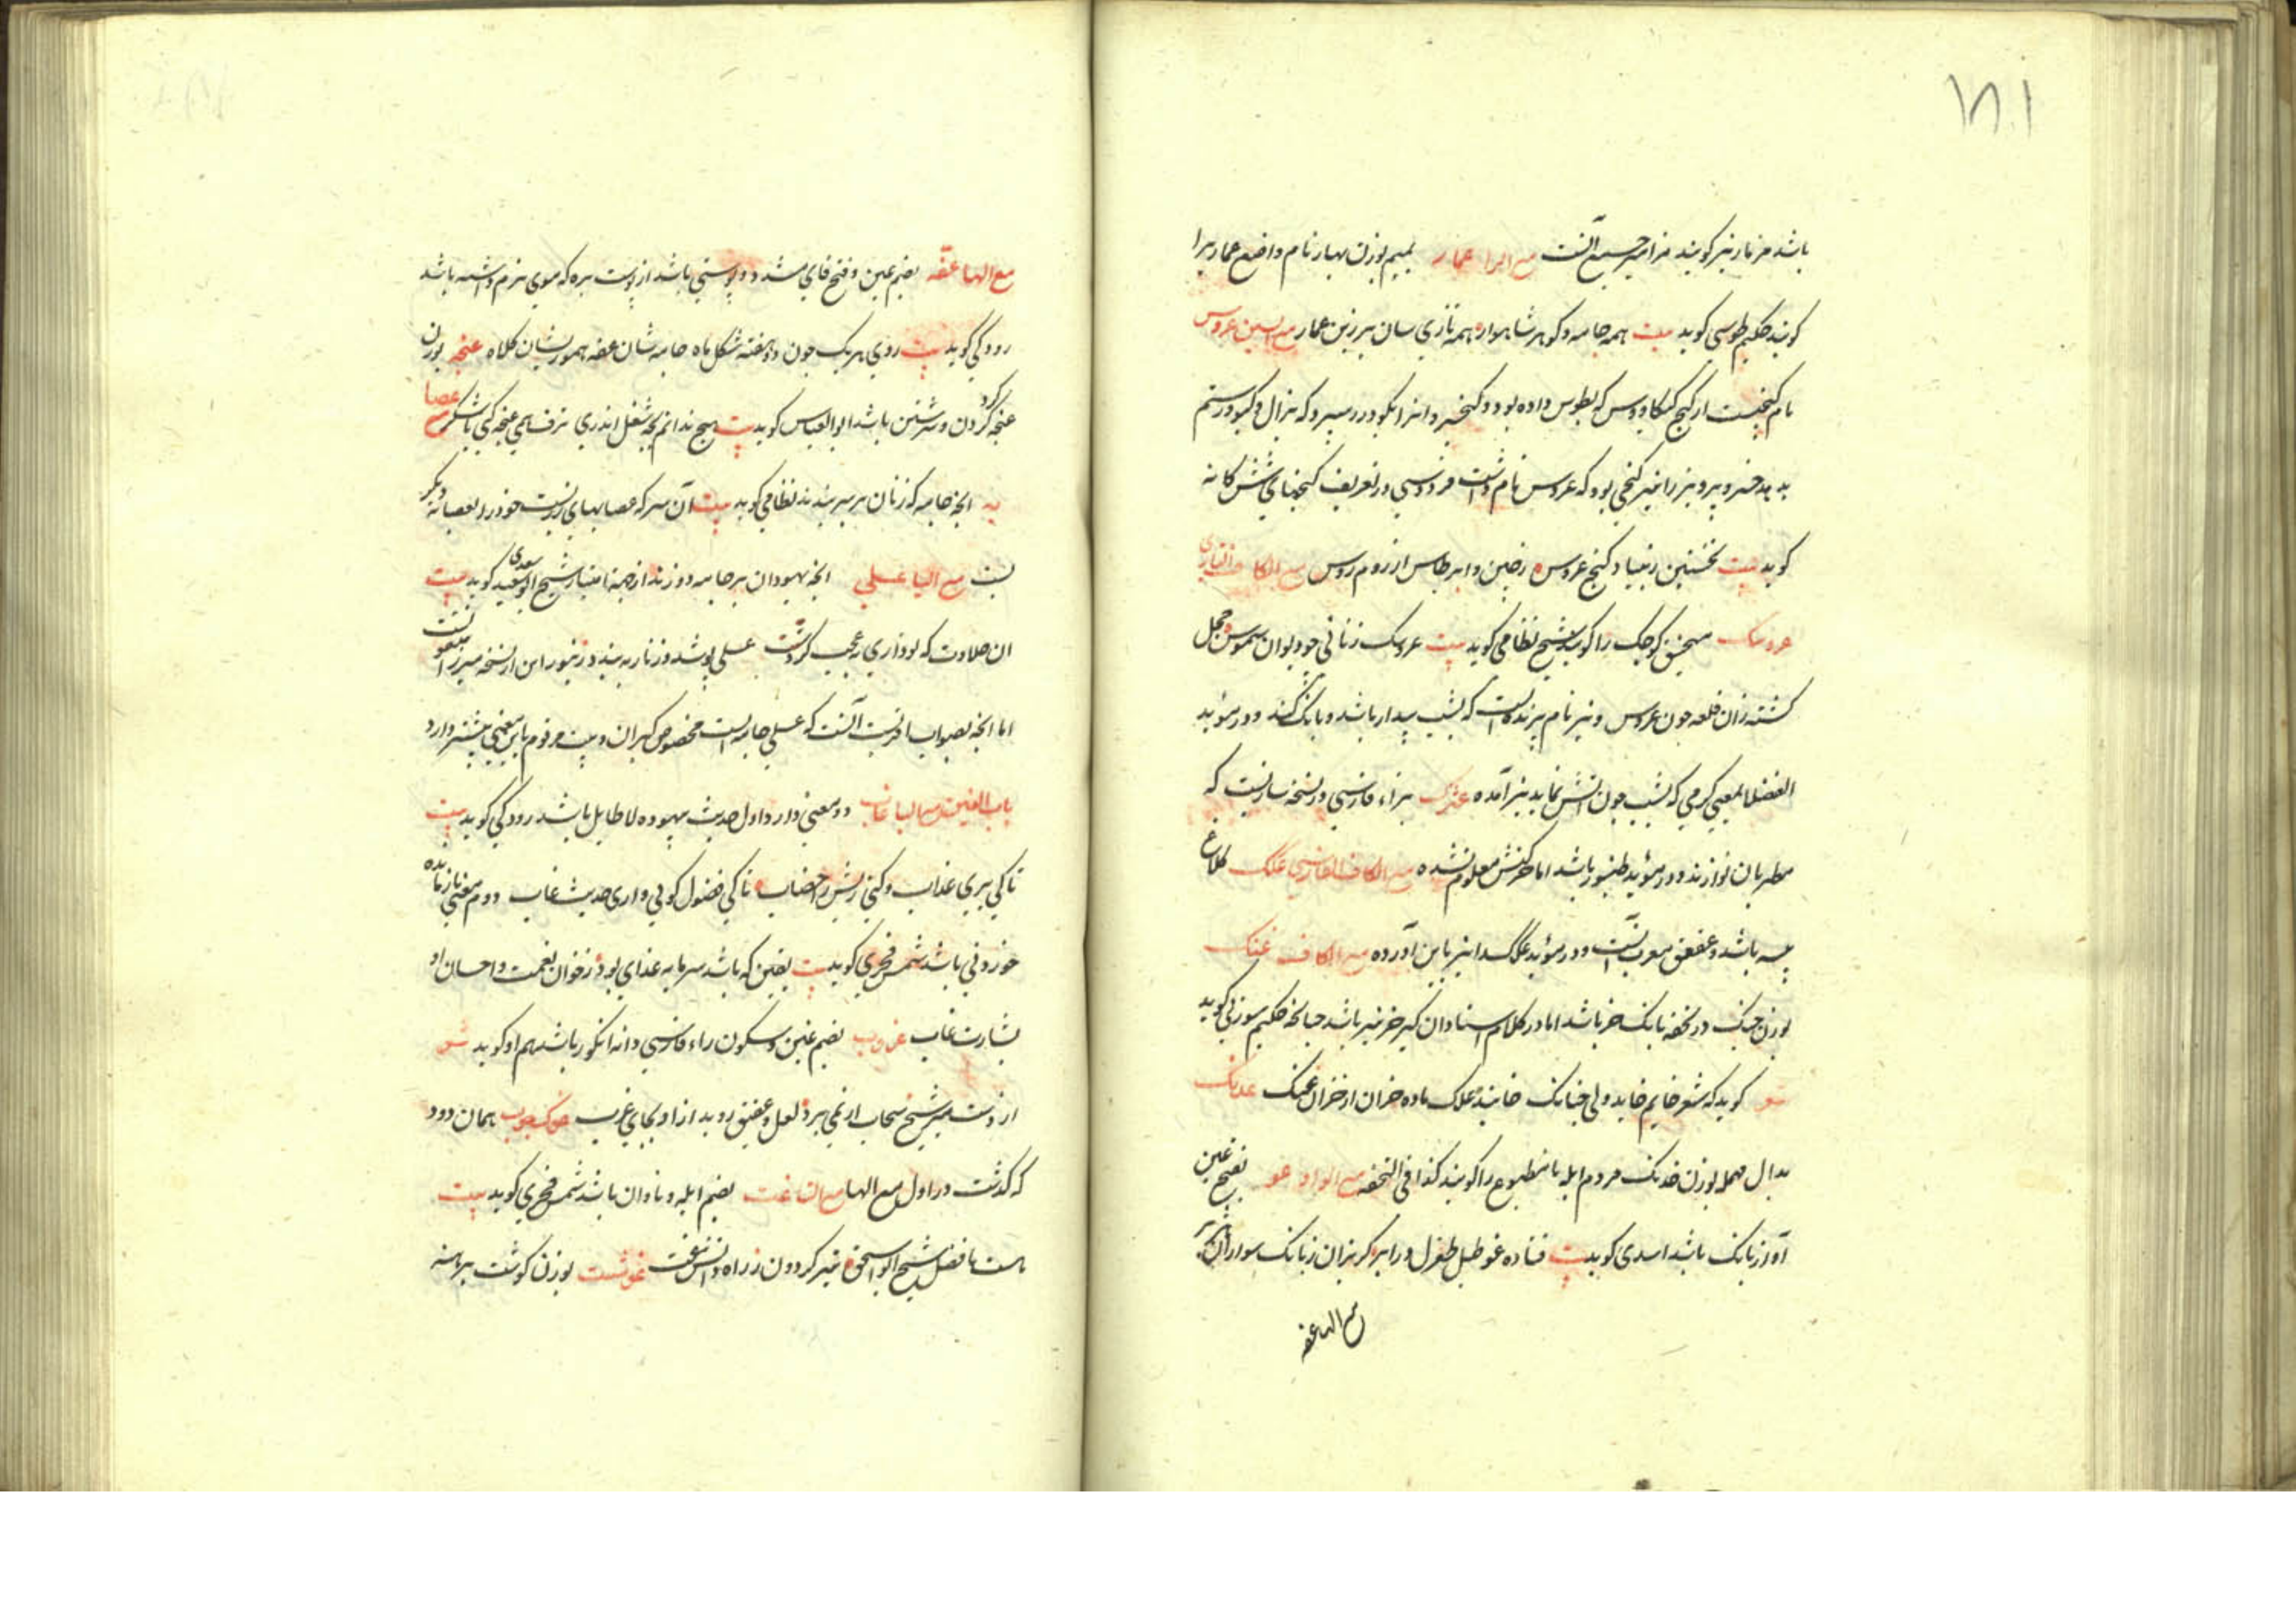 ۱۸۱
باشد مزمار نیز گویند مزامیر جمع آنست مع الرا عمار بمیم بوزن بهار نام واضع عماریرا
گویند حکیم طوسی گوید بیت همه جامه و گوهر شاهوار همه تازی سان بزرین عمار مع السین عروس
نام گنجیست از گنج کیکاووس که بطوس داده بود و کیخسرو انرا بگودرز سپرد که بزال و گیو و رستم
بدهد خسرو پرویز را نیز گنجی بود که عروس نام داشت فردوسی در تعریف گنجهای ششگانه
گوید بیت نخستین که بنیاد گنج عروس ز چین و ز برطاس از روم و روس مع الکاف التازی
عروسک منجنیق کوچک را گویند شیخ نظامی گوید بیت عروسک زنانی چو دیوان شموس خجل
گشته زان قلعه چون عروس و نیز نام پرنده ایست که بشب بیدار باشد و بانک کند و در مؤید
الفضلا بمعنی کرمی که بشب چون اتش نماید نیز آمده عژک بزاء فارسی در نسخه سازیست که
مطربان نوازند و در مؤید طنبور باشد اما حرکتش معلوم نشده مع الکاف الفارسی عکک کلاغ
پیسه باشد و عقعق معرب آنست و در مؤید عکک را نیز باین آورده مع الکاف عنک
بوزن جنک در تحفه بانک خر باشد اما در کلام استادان کیر خر نیز باشد چنانکه حکیم سوزنی گوید
شعر گوید که شعر خایم خاید ولی چنانک خایند علک ماده خران از خران عنک عدنک
بدال مهمله بوزن خدنک مردم ابله نامطبوع را گویند کذا فی التحفه مع الواو عو بفتح عین
آواز بانک باشد اسدی گوید بیت فتاده غو طبل طغرل در ابر گریزان ز بانک سواران
مع الها عفه
مع الها عفه بضم عین و فتح فای مشدد پوستی باشد از پوست بره که موی نرم داشته باشد
رودکی گوید بیت روی هر یک چون دو هفته شکل ماه جامه شان عفه سمورشان کلاه عنجه بوزن
غنجه گرد کردن و سرشتن باشد ابوالعباس گوید بیت هیچ ندانم بچه شغل اندری ترف همی عنجه کنی یا شکر مع عصا
به انچه جامه که زنان بر سر بندند نظامی گوید بیت آن سر که عصابهای زر بست خود در د عصابه دگر
بست مع الیا عسلی انچه یهودان بر جامه دوزند از جهة امتیاز شیخ ابو سعید سعدی گوید بیت
ان حلاوت که تو داری نه عجب کز دستت عسلی پوشد و زنار ببندد زنبور این از نسخه میرزا منقولست
اما انچه بصواب اقربست آنست که عسلی جامه ایست مخصوص گبران و بیت مرقوم باین معنی بیشتر دارد
باب الغین مع البا غاب دو معنی دارد اول حدیث بیهوده لا طایل باشد رودکی گوید بیت
تا کی بری عذاب و کنی ریش را خضاب تا کی فضول گوئی و اری حدیث غاب دوم بمعنی باز مانده
خوردنی باشد شمس فخری گوید بیت یقین که باشد سرمایه غذای بود ز خوان نعمت و احسان او
بشارت غاب غرب بضم غین و سکون راء فارسی دانه انگور باشد هم او گوید شعر
از دست میر شیخ سحاب ار نمی برد لعل و عقیق روید از او بجای غرب غوک چوب همان دود
که گذشت در اول مع الها مع التا غت بضم ابله و نادان باشد شمس فخری گوید بیت
هست با فضل شیخ ابو اسحق تیر گردون ز راه دانش غت غوشت بوزن گوشت برهنه